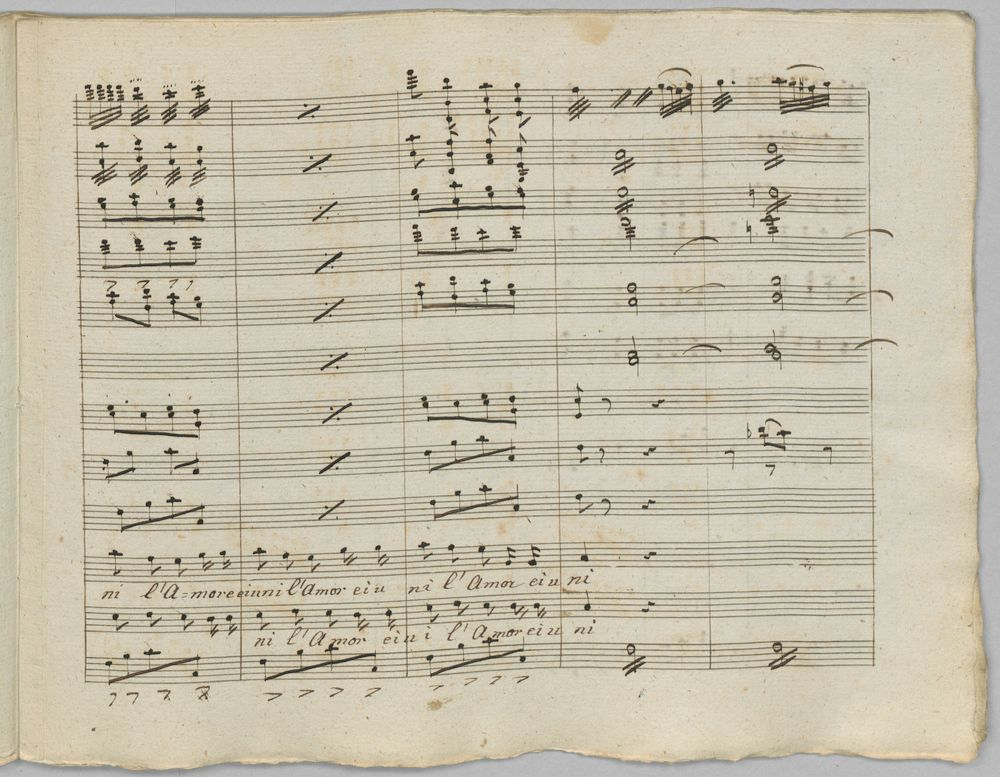 ni l'A=more ei uni l'Amor ei u ni l' Amor ei u ni
ni l'Amor ei u i l' Amor ei u ni